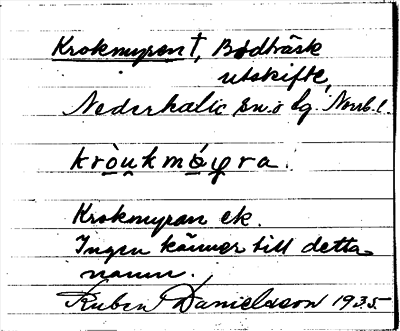 Krokmyran†, Bodträsk
utskifte,
Nederkalix sn. o lg. Norrb. l.
kròu̯kmóyra.
Krokmyran ek.
Ingen känner till detta
namn.
Ruben Danielsson 1935